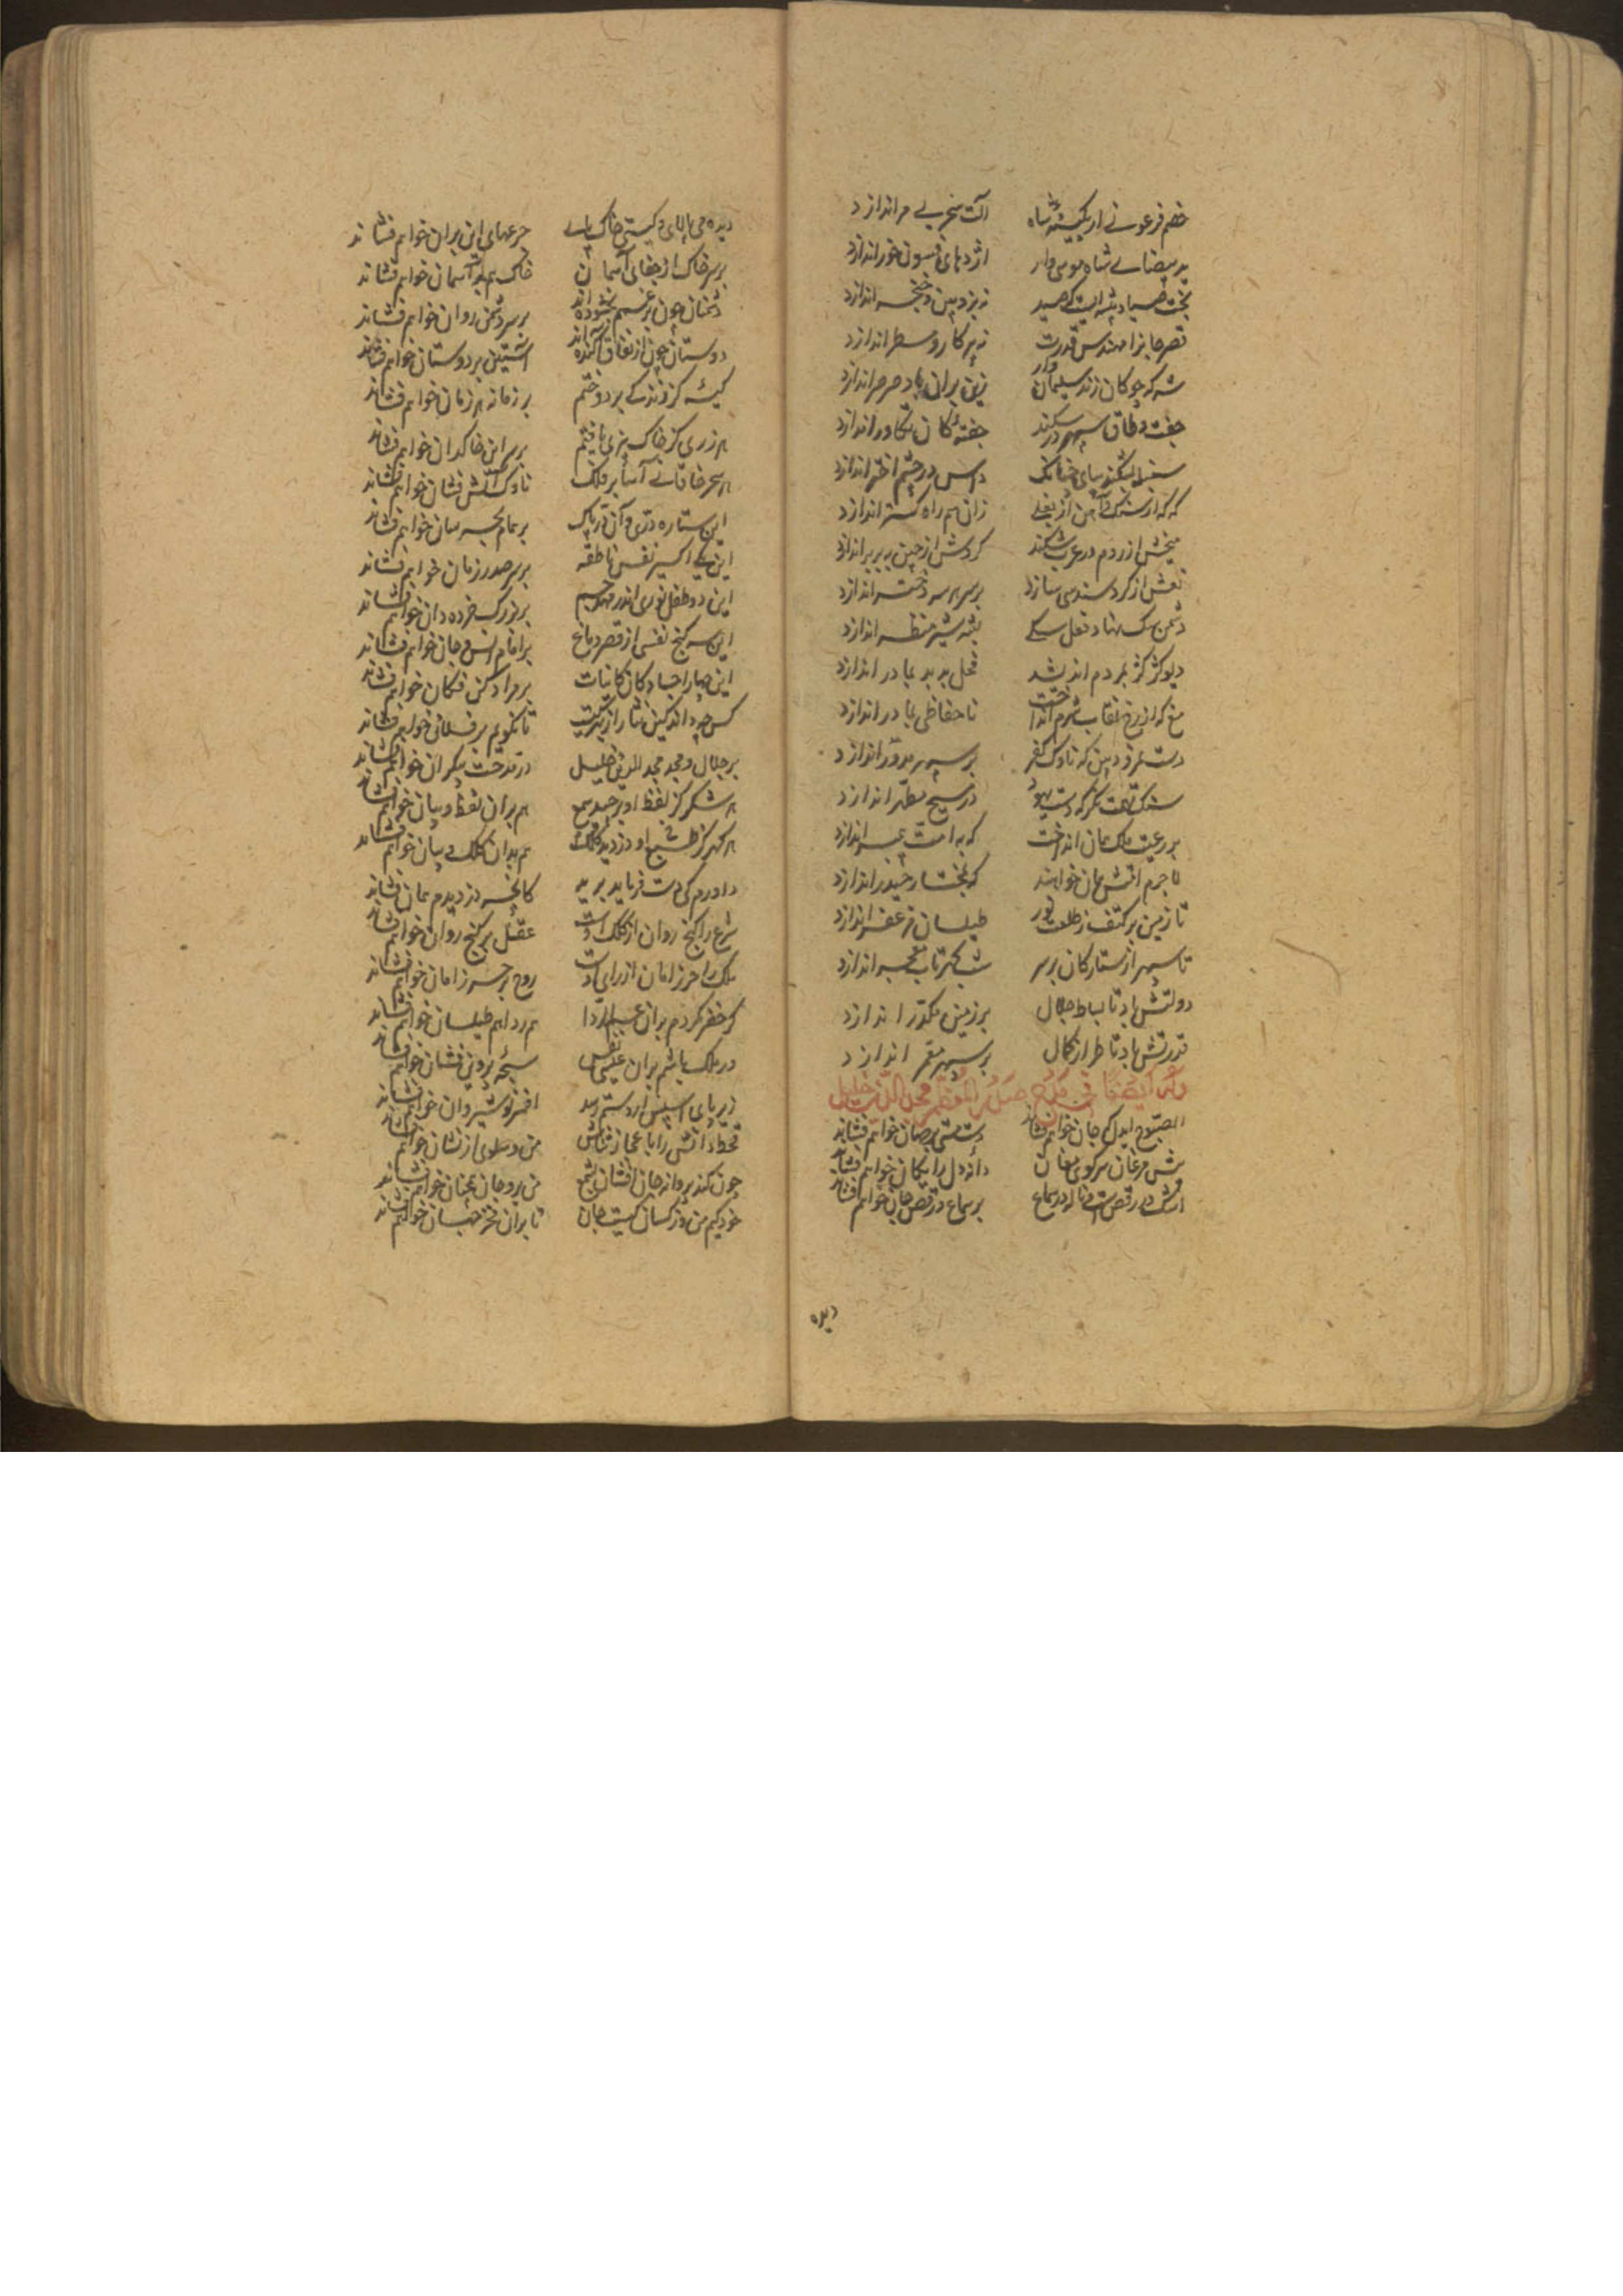 خصم فرعونی ار بکینه شاه آلت سحر بی مر اندازد
ید بیضای شاه موسی وار اژدهای فسون خور اندازد
بخت صیاد پیشه ایست که صید نه بزوبین و خنجر اندازد
قصر جانرا مهندس قدرت نه بپرکار و مسطر اندازد
شه که چوکان زند سلیمان وار زین بران باد صرصر اندازد
جفت و طاق سپهر در شکند جفته کان تکاور اندازد
سنبله بشکند بپای چنانک داس در چشم اختر اندازد
که که از سنک و آهن از نعلی زان هم راه کستر اندازد
میخش از روم در عرب شکند کردش از چین ببربر اندازد
نعش از کرد سندسی سازد بر سر هر سه دختر اندازد
دشمن سک نهاد فعل سکی پیشه شیر منظر اندازد
دیو کژ کژ بمردم اندیشد فحل بد بد بمادر اندازد
مغ که از رخ نقاب شرم انداخت ناحفاظی بمادر اندازد
دست نمرود بین که ناوک کفر بر سپهر مدور اندازد
سنک تهمت نکر که دست یهود در مسیح مطهر اندازد
بر رعیت ملک همان انداخت که بامت پیمبر اندازد
لاجرم امتش همان خواهند که بکفار حیدر اندازد
تا زمین بر کتف ز طلعت خور طیلسان مزعفر اندازد
تا سپهر از ستارکان بر سر شب کهرتاب معجر اندازد
دولتش باد تا بساط جلال بر زمین مکدر اندازد
قدرتش باد تا طراز کمال بر سپهر مقمر اندازد
وله ایضا فی مدح صدر المعظم مجد الدین خلیل
الصبوح ایدل که جان خواهم فشاند دست مستی بر جهان خواهم فشاند
پیش مرغان سر کوی مغان دانه دل رایکان خواهم فشاند
اشک در رقص است و ناله در سماع بر سماع و رقص جان خواهم فشاند
دیده
دیده می پالای و کیتی خاک پای جرعهای این بران خواهم فشاند
بر سر خاک از جفای آسمان خاک هم بر آسمان خواهم فشاند
دشمنان چون بر غمم بخشوده اند بر سر دشمن روان خواهم فشاند
دوستان چون از نفاق آکنده اند آستین بر دوستان خواهم فشاند
کیسه کز زندکی بردوختم بر زمانه هر زمان خواهم فشاند
هر زری کز خاک بیزی یافتم بر سر این خاکدان خواهم فشاند
هر سحر خاقانی آسا بر فلک ناوک آتش فشان خواهم فشاند
این ستاره دری و آن در پاک بر همام بحرسان خواهم فشاند
این یک اکسیر نفس ناطقه بر سر صدر زمان خواهم فشاند
این دو طفل نوری اندر مهد چشم بر بزرک خرده دان خواهم فشاند
این سه کنج نفس از قصر دماغ بر امام انس و جان خواهم فشاند
این چهار اجساد کان کاینات بر مراد کن فکان خواهم فشاند
کس چه داند کین نثار از بهر کیست تا نکویم بر فلان خواهم فشاند
بر جلال و مجد مجد الدین خلیل در مدحت بیکران خواهم فشاند
هر شکر کز لفظ او برچید سمع هم بران لفظ و بیان خواهم فشاند
هر کهر کز طبع او دزدید کلک هم بدان کلک و بنان خواهم فشاند
داورم کی دست فرماید برید کانچه دزدیدم همان خواهم فشاند
شرع را کنج روان از کلک اوست عقل بر کنج روان خواهم فشاند
ملک را حرز امان از رای اوست روح بر حرز امان خواهم فشاند
کر خضر کردم بران عیسی ردا هم ردا هم طیلسان خواهم فشاند
ور ملک باشم بران عیسی نفس سبحه پروین فشان خواهم فشاند
زیر پای اسپش ار دستم رسد افسر نوشیروان خواهم فشاند
قحط دانش را باعجاز ثناش من و سلوی از لسان خواهم فشاند
چون کند پروانه جان افشان بشمع من برو جان همچنان خواهم فشاند
خود کیم من وز کسان کیست جان تا بران فخر جهان خواهم فشاند